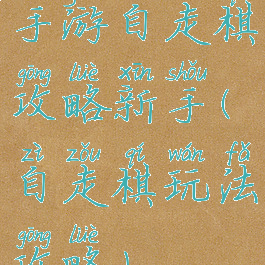 手游自走棋
gōng lüè xīn shǒu
攻略新手(
zì zǒu qí wán fǎ
自走棋玩法
gōng lüè
攻略)